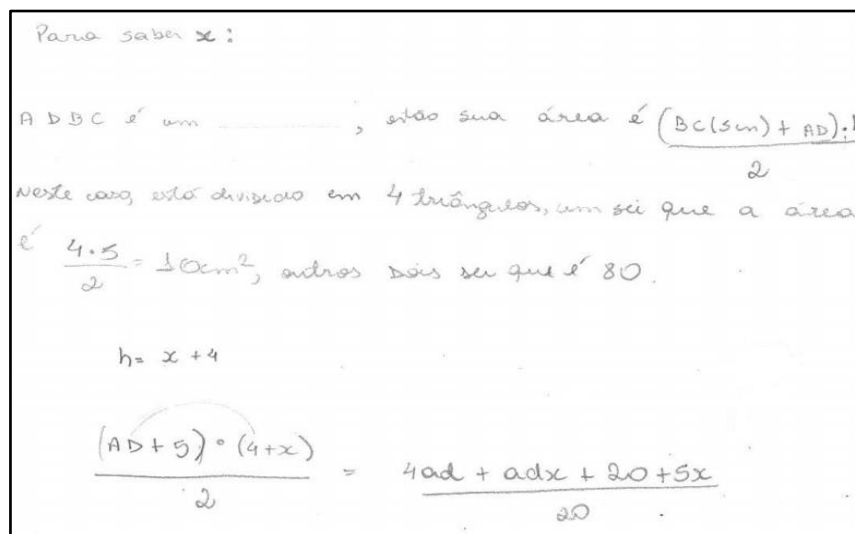 Para saber x:
ADBC é um ............, então sua área é (BC(5cm) + AD).h / 2
Neste caso, está dividido em 4 triângulos, um sei que a área
é 4.5/2 = 10cm², outros dois sei que é 80.
h = x + 4
(AD + 5) . (4+x) / 2 = 4ad + adx + 20 + 5x / 20